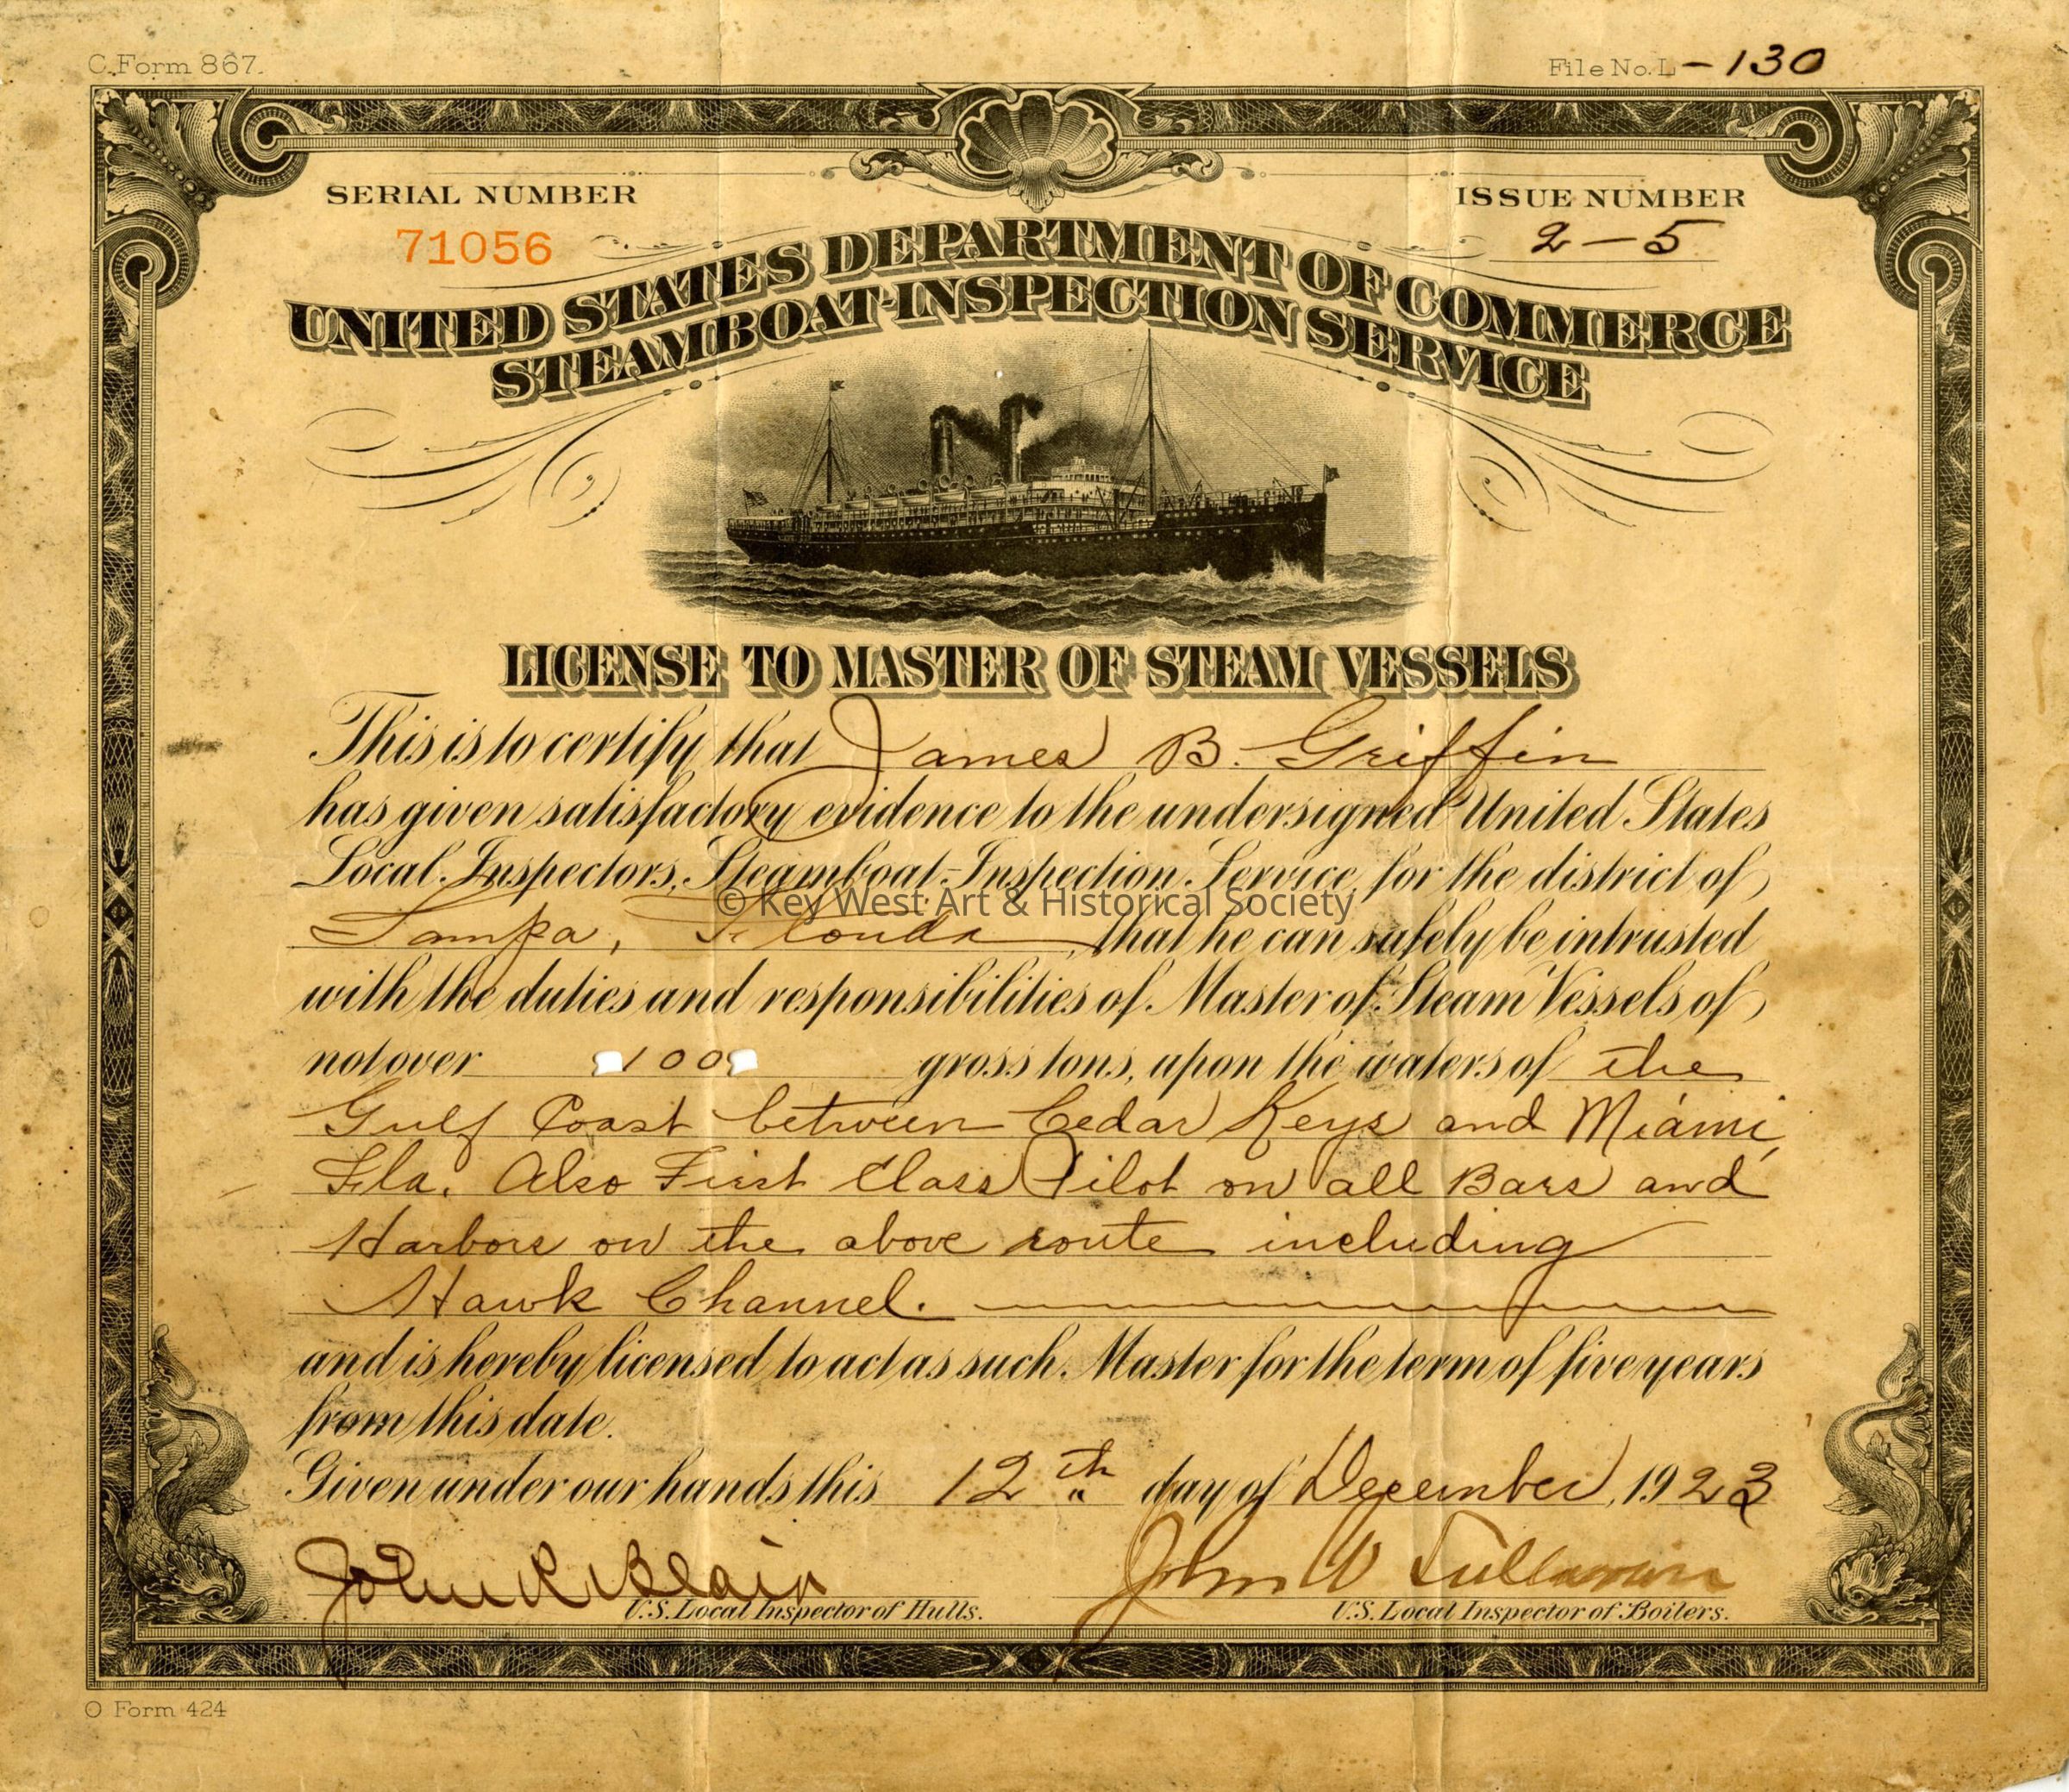 C. Form 867.
File No. L-130
SERIAL NUMBER
ISSUE NUMBER
71056
2-5
UNITED STATES DEPARTMENT OF COMMERCE
STEAMBOAT-INSPECTION SERVICE
LICENSE TO MASTER OF STEAM VESSELS
This is to certify that James B. Griffin
has given satisfactory evidence to the undersigned United States
Local Inspectors, Steamboat-Inspection Service, for the district of
© Key West Art & Historical Society
Tampa, Florida, that he can safely be intrusted
with the duties and responsibilities of Master of Steam Vessels of
not over 100 gross tons, upon the waters of the
Gulf Coast between Cedar Keys and Miami,
Fla. Also First Class Pilot on all Bars and
Harbors on the above route including
Hawk Channel.
and is hereby licensed to act as such Master for the term of five years
from this date.
Given under our hands this 12th day of December, 1923
John K. Blain John W Sullivan
U.S. Local Inspector of Hulls. U.S. Local Inspector of Boilers.
O Form 424